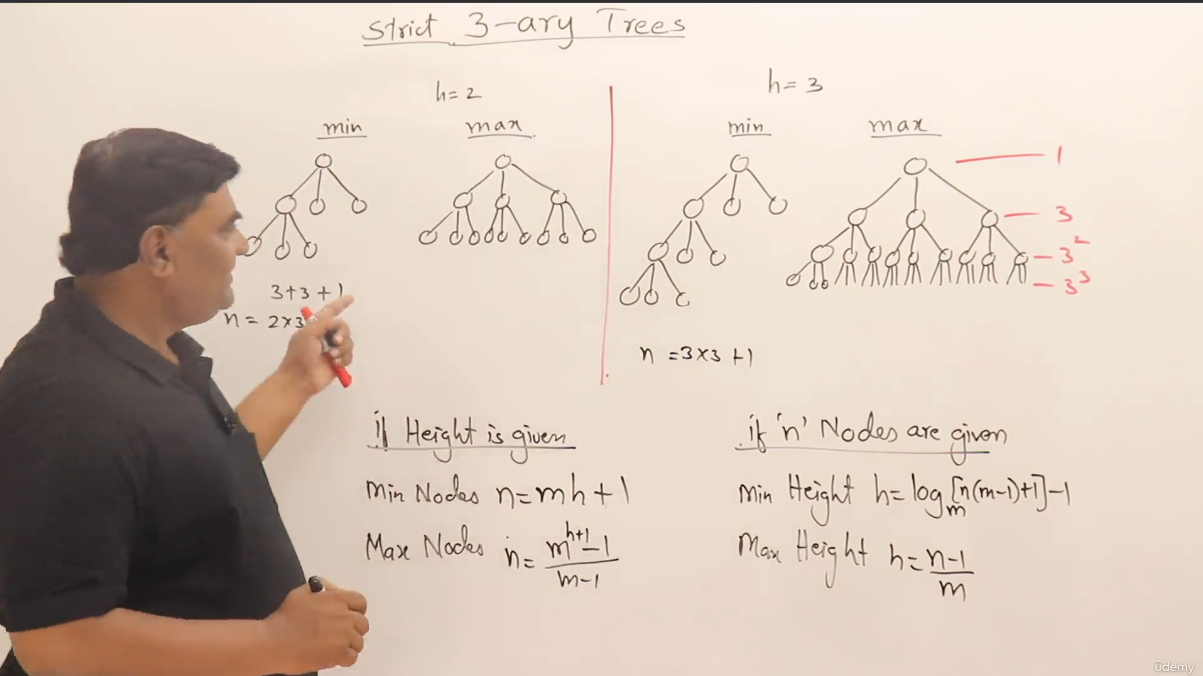 Strict 3-ary Trees
h=2
min
max
3+3+1
n = 2×3
h=3
min
max
1
3
3²
3³
n =3×3 +1
if Height is given
Min Nodes n=mh+1
Max Nodes n= m^(h+1)-1 / m-1
if 'n' Nodes are given
Min Height h=log_m[n(m-1)+1]-1
Max Height h= n-1 / m
ûdemy